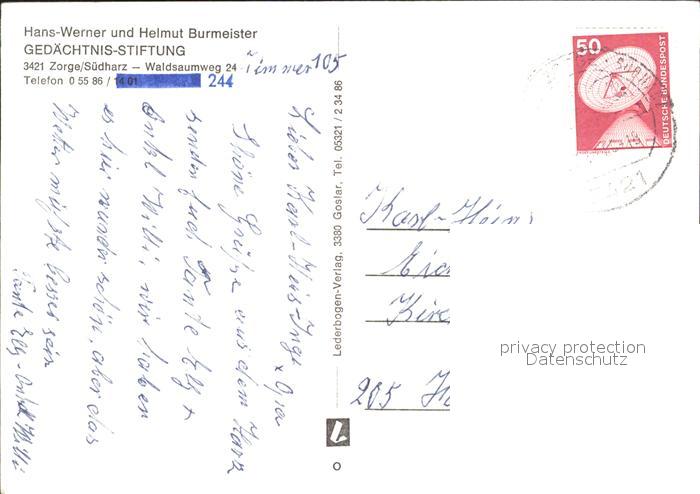 Hans-Werner und Helmut Burmeister
GEDÄCHTNIS-STIFTUNG
3421 Zorge/Südharz — Waldsaumweg 24 Zimmer 105
Telefon 0 55 86 / 14 01 244
Lieber Karl-Heinz-Inge
x Opa
Schöne Grüße aus dem Harz
senden Euch Tante Elly +
Onkel Willi, wir haben
es hier wunderschön, aber das
Wetter müßte besser sein
Tante Elly-Onkel Willi
Lederbogen-Verlag, 3380 Goslar, Tel. 05321 / 2 34 86
50
DEUTSCHE BUNDESPOST
Karl-Heinz
205
privacy protection
Datenschutz